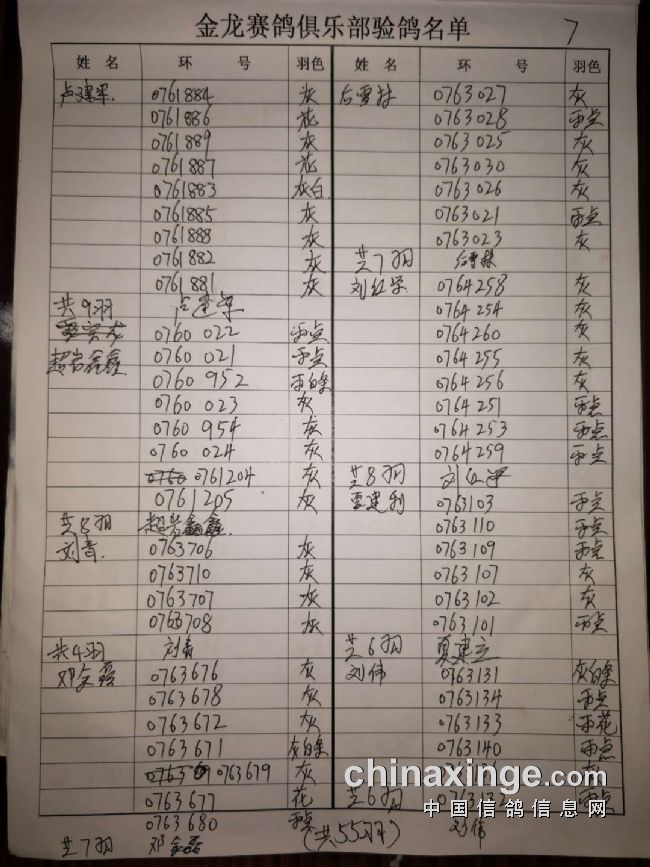 金龙赛鸽俱乐部验鸽名单 7
姓名 环号 羽色
卢建军. 0761884 灰
0761886 花
0761889 灰
0761887 花
0761883 灰白
0761885 灰
0761888 灰
0761882 灰
0761881 灰
共9羽
0760 022 雨点
0760 021 雨点
0760 952 雨白条
0760 023 灰
0760 954 灰
0760 024 灰
0761204 灰
0761205 灰
共8羽
刘青. 0763706 灰
0763710 灰
0763707 灰
0763708 灰
共4羽 刘青
0763676 灰
0763678 灰
0763672 灰
0763671 灰白条
0763679 灰
0763677 花
0763680 雨点
共7羽
姓名 环号 羽色
0763027 灰
0763028 雨点
0763025 灰
0763030 灰
0763026 灰
0763021 雨点
0763023 灰
共7羽
刘红军 0764258 灰
0764254 灰
0764260 灰
0764255 灰
0764256 灰
0764251 雨点
0764253 雨点
0764259 雨点
共8羽 刘红军
0763103 雨点
0763110 雨点
0763109 雨点
0763107 灰
0763102 灰
0763101 雨点
共6羽
刘伟 0763131 灰白条
0763134 雨点
0763133 雨花
0763140 雨点
共6羽 雨点
刘伟
(共55羽)
chinaxinge.com
中国信鸽信息网